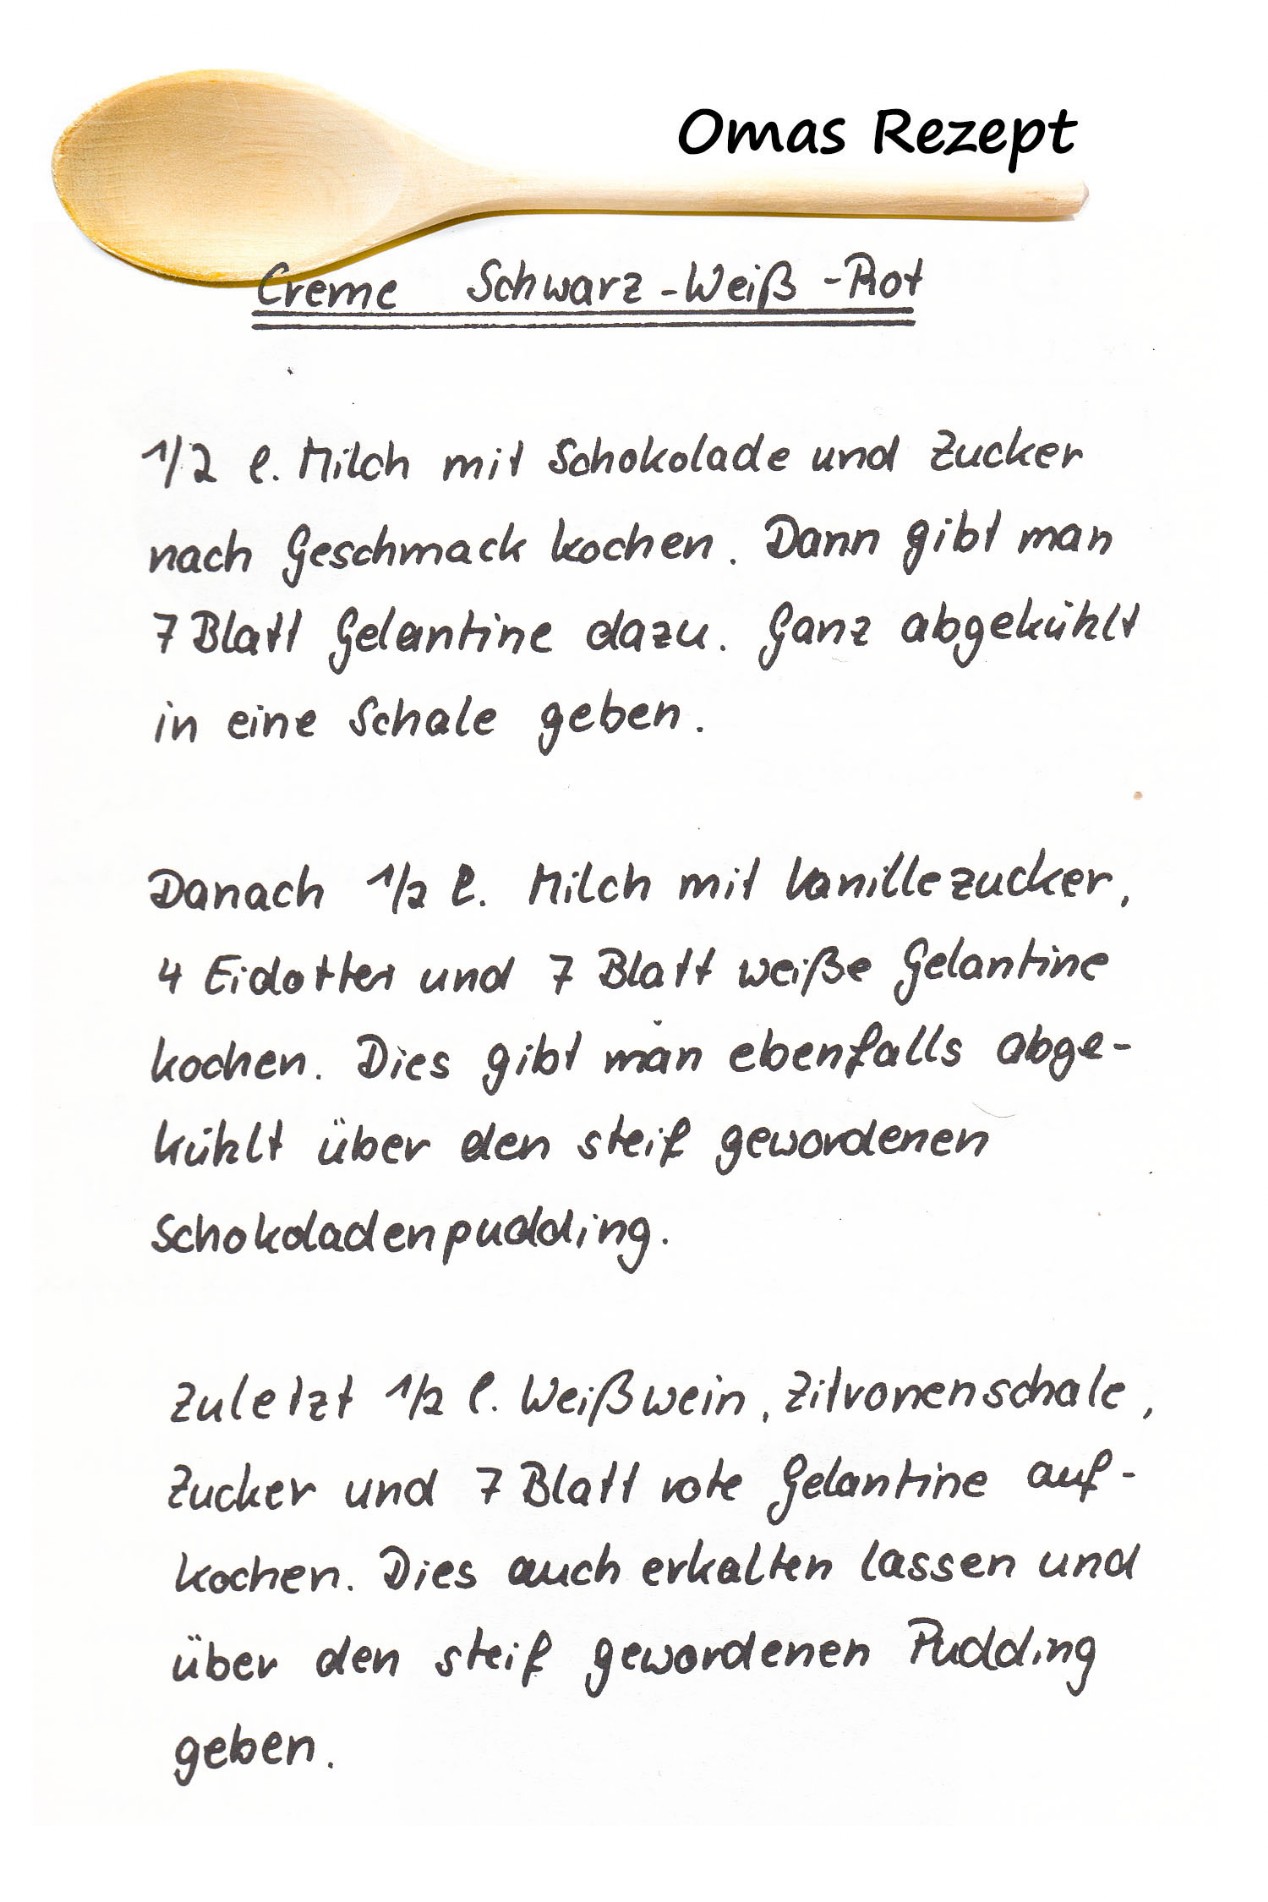 Omas Rezept
Creme Schwarz-Weiß-Rot
1/2 l. Milch mit Schokolade und Zucker
nach Geschmack kochen. Dann gibt man
7 Blatt Gelantine dazu. Ganz abgekühlt
in eine Schale geben.
Danach 1/2 l. Milch mit Vanillezucker,
4 Eidotter und 7 Blatt weiße Gelantine
kochen. Dies gibt man ebenfalls abge-
kühlt über den steif gewordenen
Schokoladenpudding.
Zuletzt 1/2 l. Weißwein, Zitronenschale,
Zucker und 7 Blatt rote Gelantine auf-
kochen. Dies auch erkalten lassen und
über den steif gewordenen Pudding
geben.